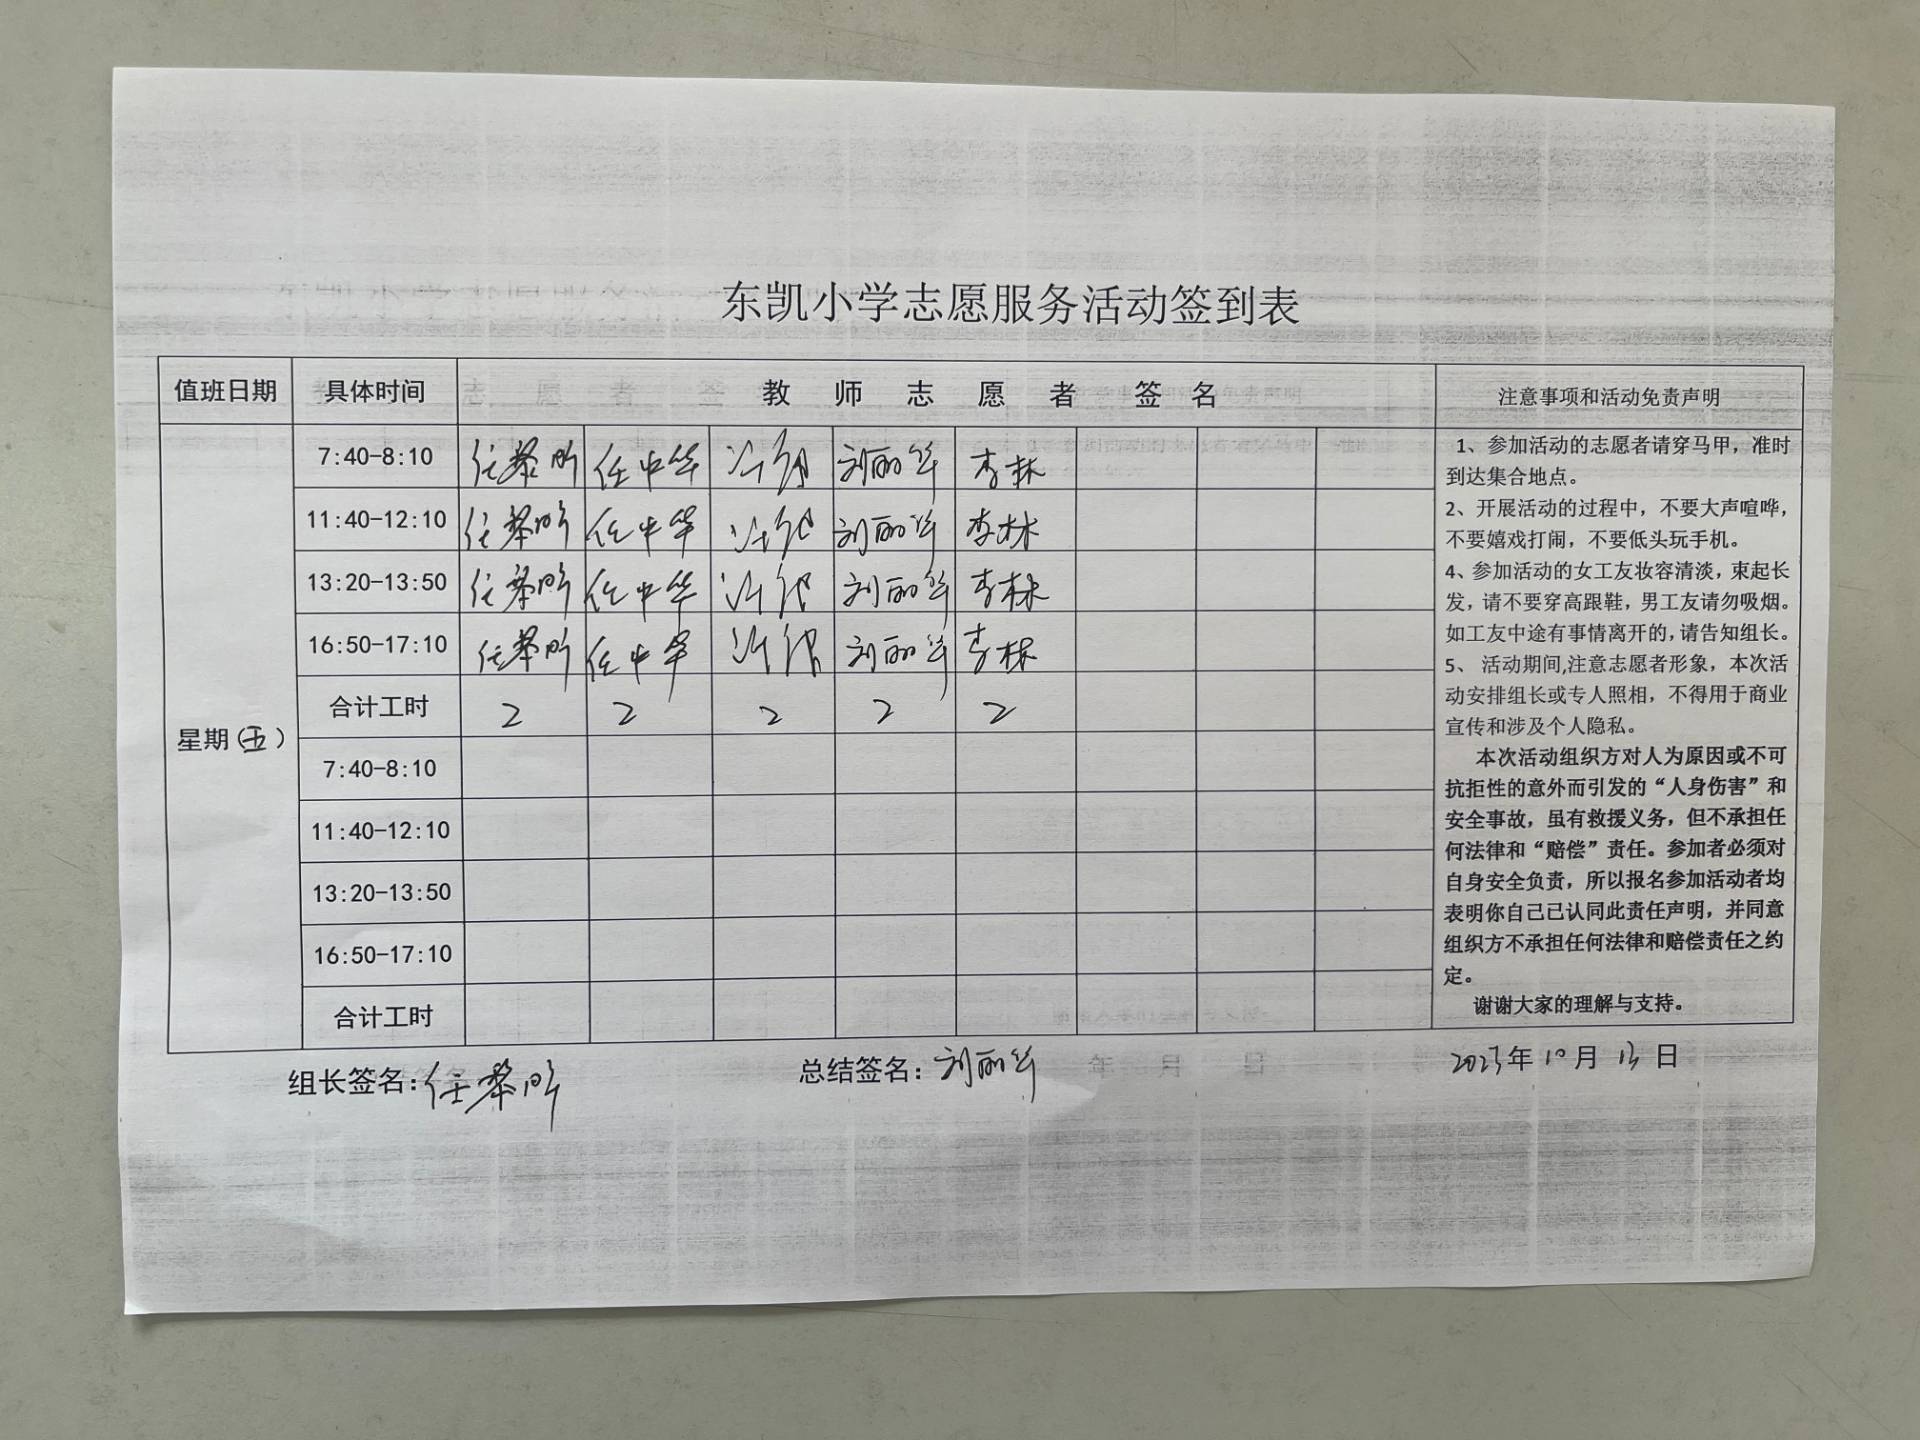 东凯小学志愿服务活动签到表
值班日期 具体时间 教师志愿者签名 注意事项和活动免责声明
7:40-8:10 任黎明 任中华 刘丽华 李林
11:40-12:10 任黎明 任中华 刘丽华 李林
13:20-13:50 任黎明 任中华 刘丽华 李林
16:50-17:10 任黎明 任中华 刘丽华 李林
合计工时 2 2 2 2 2
星期(五)
7:40-8:10
11:40-12:10
13:20-13:50
16:50-17:10
合计工时
1、参加活动的志愿者请穿马甲，准时
到达集合地点。
2、开展活动的过程中，不要大声喧哗，
不要嬉戏打闹，不要低头玩手机。
4、参加活动的女工友妆容清淡，束起长
发，请不要穿高跟鞋，男工友请勿吸烟。
如工友中途有事情离开的，请告知组长。
5、 活动期间,注意志愿者形象，本次活
动安排组长或专人照相，不得用于商业
宣传和涉及个人隐私。
本次活动组织方对人为原因或不可
抗拒性的意外而引发的“人身伤害”和
安全事故，虽有救援义务，但不承担任
何法律和“赔偿”责任。参加者必须对
自身安全负责，所以报名参加活动者均
表明你自己已认同此责任声明，并同意
组织方不承担任何法律和赔偿责任之约
定。
谢谢大家的理解与支持。
组长签名：任黎明 总结签名：刘丽华 2023年10月13日